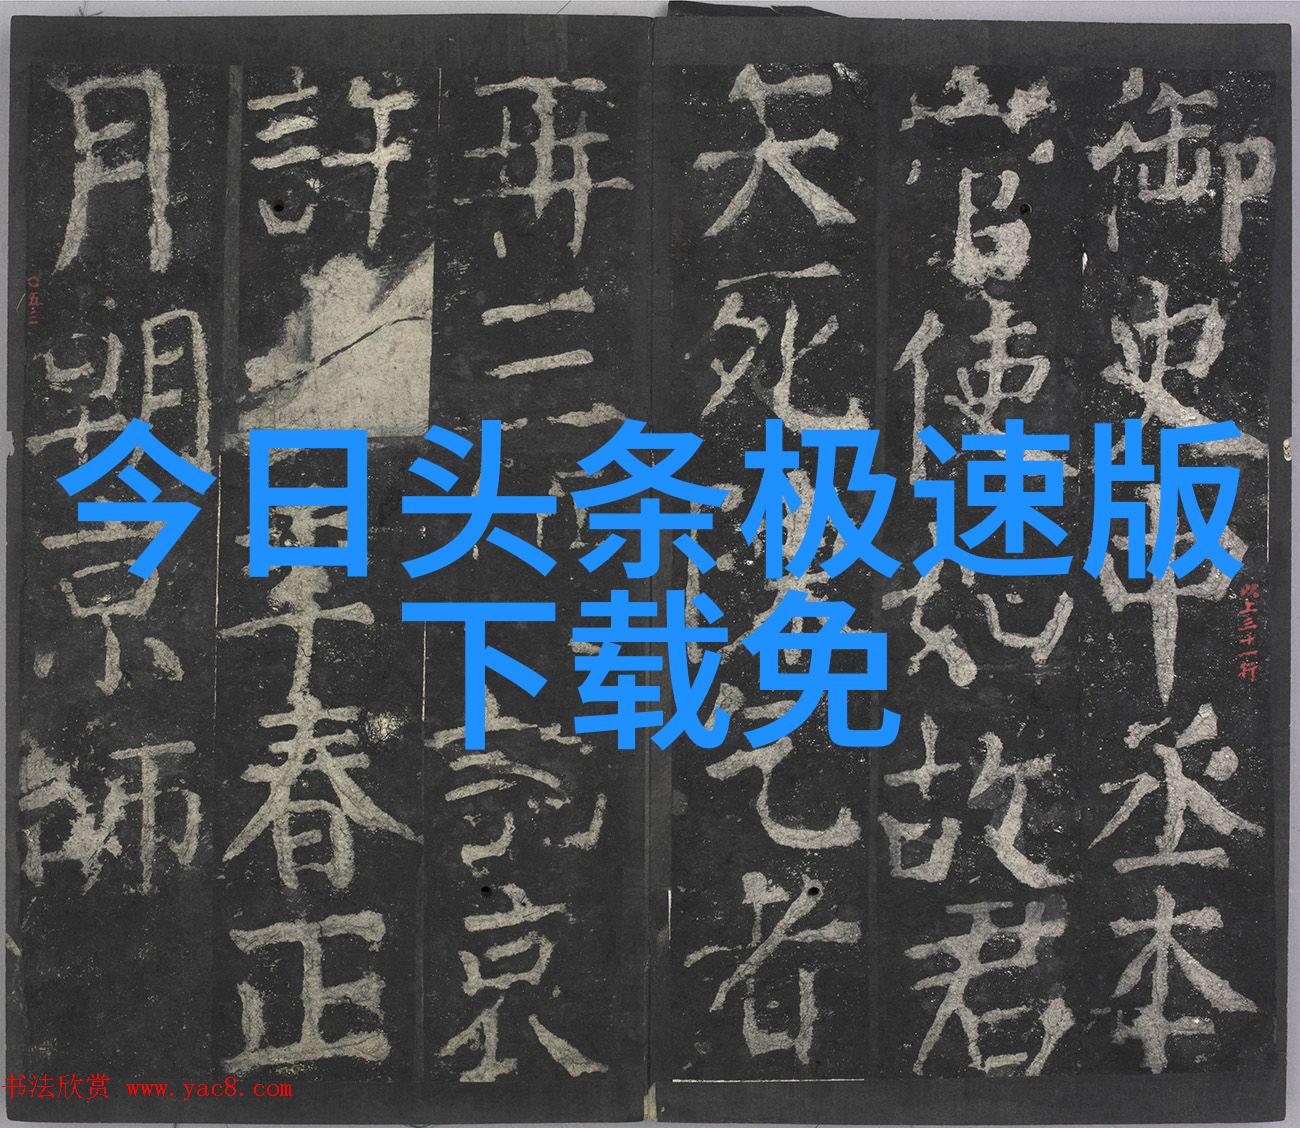 今日头条极速版
下载免
御史中丞本
當使知故君
死乙者
再二京
許年春正
月朔京師
以上三十一行
书法欣赏 www.yac8.com